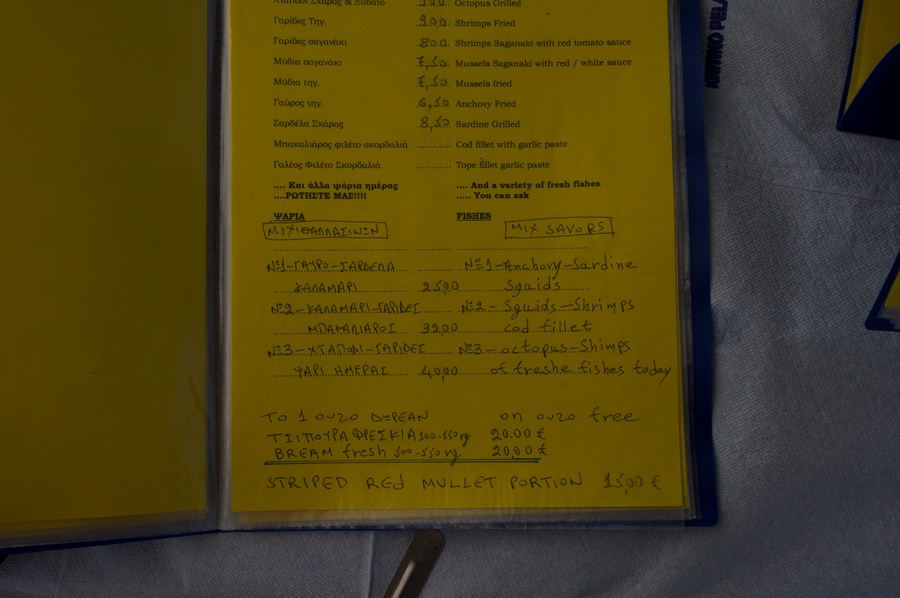 Χταπόδι Σχάρας & Ξυδάτο Octopus Grilled
Γαρίδες Τηγ. 9.00. Shrimps Fried
Γαρίδες σαγανάκι 8.00. Shrimps Saganaki with red tomato sauce
Μύδια σαγανάκι 7,50. Mussels Saganaki with red / white sauce
Μύδια τηγ. 7,50. Mussels fried
Γαύρος τηγ. 6,50. Anchovy Fried
Σαρδέλα Σχάρας 8,50 Sardine Grilled
Μπακαλιάρος φιλέτο σκορδαλιά ............ Cod fillet with garlic paste
Γαλέος Φιλέτο Σκορδαλιά ............ Tope fillet garlic paste
.... Και άλλα ψάρια ημέρας .... And a variety of fresh fishes
....ΡΩΤΗΣΤΕ ΜΑΣ!!!! ..... You can ask
ΨΑΡΙΑ FISHES
ΜΙΧΙΘΑΛΛΑΣΙΝΩΝ MIX SAVORS
Νº1-ΓΑΥΡΟ-ΣΑΡΔΕΛΑ Nº1-Anchovy-Sardine
ΚΑΛΑΜΑΡΙ 25,00 Sguids
Νº2-ΚΑΛΑΜΑΡΙ-ΓΑΡΙΔΕΣ Nº2-Sguids-Shrimps
ΜΠΑΚΑΛΙΑΡΟΣ 32,00 cod fillet
Νº3-ΧΤΑΠΟΔΙ-ΓΑΡΙΔΕΣ Nº3-octopus-Shimps
ΨΑΡΙ ΗΜΕΡΑΣ 40,00 of freshe fishes today
ΤΟ 1 ΟΥΖΟ ΔΩΡΕΑΝ on ouzo free
ΤΣΙΠΟΥΡΑ ΦΡΕΣΚΙΑ 500-550rg 20.00 €
BREAM fresh 500-550rg 20,00 €
STRIPED REd MULLET PORTION 15,00 €